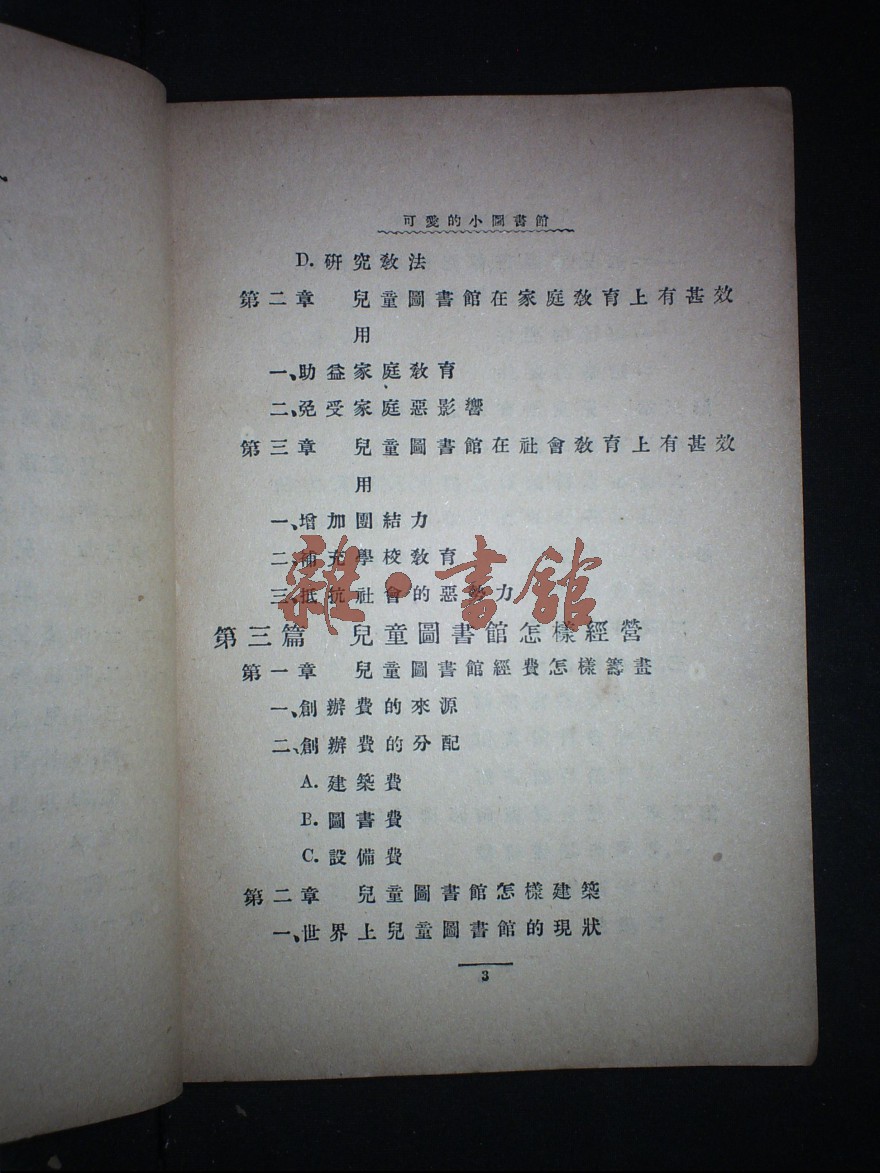 可愛的小圖書館
D. 研究敎法
第二章　兒童圖書館在家庭敎育上有甚效
用
一、助益家庭敎育
二、免受家庭惡影響
第三章　兒童圖書館在社會敎育上有甚效
用
一、增加團結力
二、補充學校敎育
三、抵抗社會的惡勢力
雜·書館
第三篇　兒童圖書館怎樣經營
第一章　兒童圖書館經費怎樣籌畫
一、創辦費的來源
二、創辦費的分配
A. 建築費
B. 圖書費
C. 設備費
第二章　兒童圖書館怎樣建築
一、世界上兒童圖書館的現狀
3